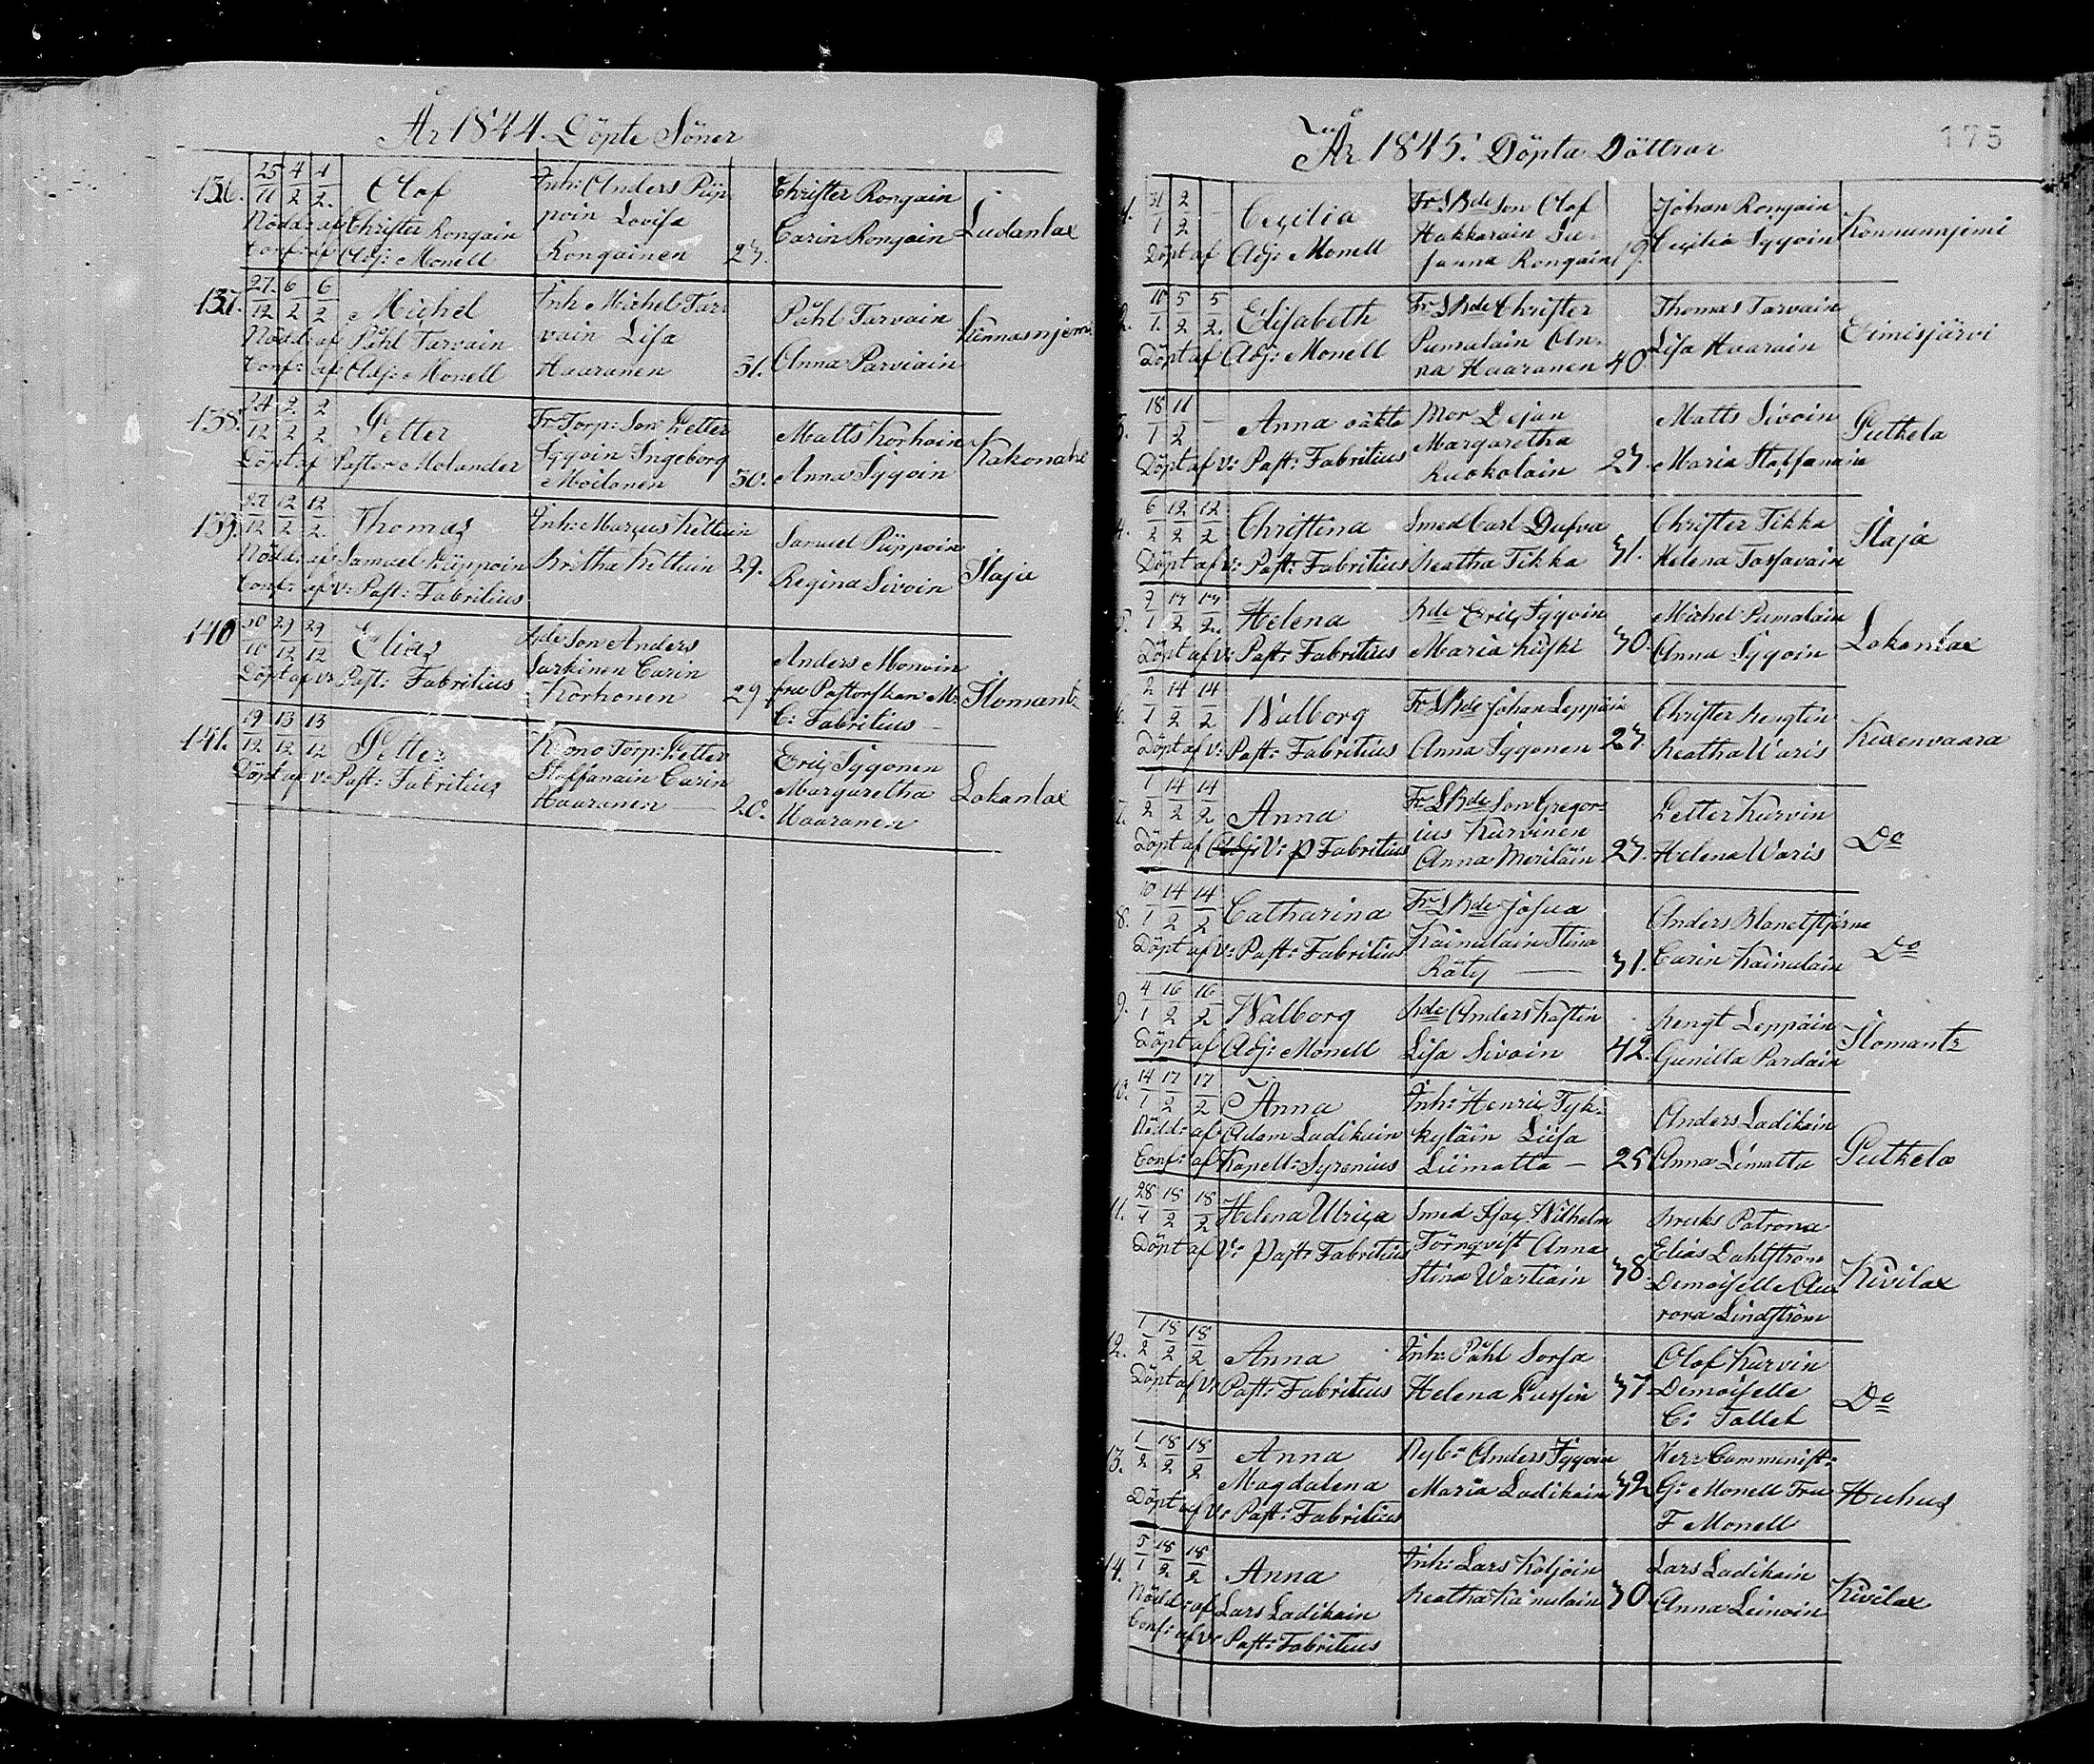 År 1844. Döpte Söner
136. 25/11 4/2 4/2. Olof Inh: Anders Püp- Christer Rongain
Nödd: af Christer Rongain poin Lovisa Carin Rongain Ludanlax
Conf: af Adj: Monell Rongainen 27.
137. 27/12 6/2 6/2 Michel Inh: Michel Tar- Påhl Tarvain
Nödd: af Påhl Tarvain vain Lisa Kinnasnjemi
Conf: af Adj: Monell Haaranen 31. Anna Parviain
138. 24/12 2/2 2/2 Petter Fr Torp: Son Petter Matts Korhoin
Döpt af Pastor Molander Iggoin Ingeborg Kakonaho
Moilanen 30. Anna Iggoin
139. 27/12 12/2 12/2. Thomas Inh: Marcus Kettuin Samuel Püppoin
Nödd: af Samuel Püppoin Britha Kettuin 29. Regina Sivoin Ilaja
Conf: af V: Past: Fabritius
140 30/10 29/12 29/12 Elias Bde Son Anders Anders Monoin
Döpt af V: Past: Fabritius Surkinen Carin fru Pastorskan M: Ilomants
Korhonen 29. C: Fabritius
141. 19/12 13/12 13/12 Petter Krono Torp: Petter Eric Iggonen
Döpt af V: Past: Fabritius Staffanain Carin Margaretha Lokanlax
Haaranen 20. Haaranen
År 1845. Döpta Döttrar 175
1. 31/1 2/2 – Cecilia Fr LBde Son Olof Johan Rongain
Döpt af Adj: Monell Hakkarain Su- Cecilia Iggoin Konnunnjemi
sanna Rongain 19.
2. 10/1. 5/2 5/2. Elisabeth Fr LBde Christer Thomas Tarvain
Döpt af Adj: Monell Pumalain An- Lisa Haarain Eimisjärvi
na Haaranen 40.
3. 18/1 11/2 – Anna oäkta Mor Lejan Matts Sivoin
Döpt af V: Past: Fabritius Margaretha Putkela
Kuokolain 27. Maria Staffanain
4. 6/2 12/2 12/2 Christina Smed Carl Dufva Christer Tikka
Döpt af V: Past: Fabritius Beatha Tikka 31. Helena Tossavain Ilaja
5. 7/1 17/2 17/2. Helena Bde Eric Iggoin Michel Pumalain
Döpt af V: Past: Fabritius Maria Kiiski 30. Anna Iggoin Lokanlax
6. 2/1 14/2 14/2 Walborg Fr LBde Johan Leppäin Christer Bengtin
Döpt af V: Past: Fabritius Anna Iggonen 27. Beatha Waris Kuxenvaara
7. 1/2 14/2 14/2 Anna Fr LBde Son Gregor- Petter Kurvin
Döpt af Adj: V: P Fabritius ius Kurvinen Do
Anna Moriläin 27. Helena Waris
8. 10/1 14/2 14/2 Catharina Fr LBde Josua Anders Blanetstjerna
Döpt af V: Past: Fabritius Kainulain Stina Do
Räty — 31. Carin Kainulain
9. 4/1 16/2 16/2 Walborg Bde Anders Kastin Bengt Leppäin
Döpt af Adj: Monell Lisa Sivoin 42. Gunilla Pardain Ilomants
10. 14/1 17/2 17/2 Anna Inh: Henric Tyk- Anders Ladikain
Nödd: af Adam Ladikain kyläin Liisa
Conf: af Kapell: Syrenius Liimatta – 25 Anna Limatta Putkela
11. 28/1 18/2 18/2 Helena Ulrica Smed Isac Wilhelm Bruks Patron
Döpt af V: Past: Fabritius Törnqvist Anna Elias Dahlström
Stina Wartiain 38. Demoiselle Au- Kivilax
rora Lindström
12. 1/2 18/2 18/2 Anna Inh: Påhl Sorsa Olof Kurvin
Döpt af V: Past: Fabritius Helena Pussin 37 Demoiselle
C: Tallet Do
13. 1/2 18/2 18/2 Anna Nyb: Anders Iggoin Herr Comminist:
Magdalena Maria Ladikain 32 G: Monell Fru Huhus
Döpt af V: Past: Fabritius F Monell
14. 5/1 18/2 18/2 Anna Inh: Lars Koljoin Lars Ladikain
Nödd: af Lars Ladikain Beatha Kainulain 30 Anna Leinoin Kivilax
Conf: af V: Past: Fabritius